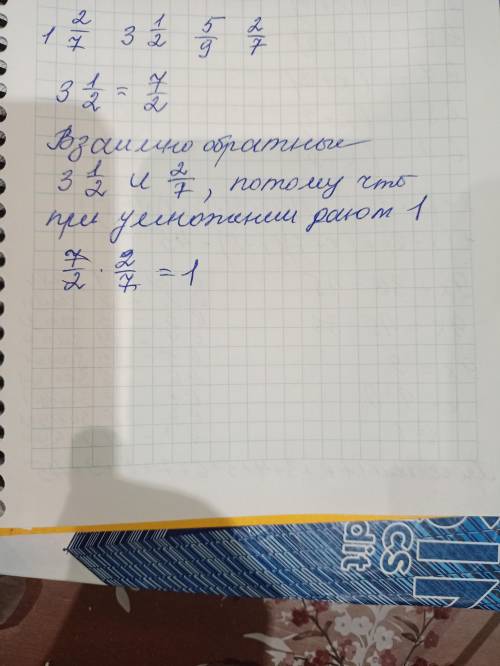 1 2/7 3 1/2 5/9 2/7
3 1/2 = 7/2
Взаимно обратные
3 1/2 и 2/7, потому что
при умножении дают 1
7/2 · 2/7 = 1
CS
dit